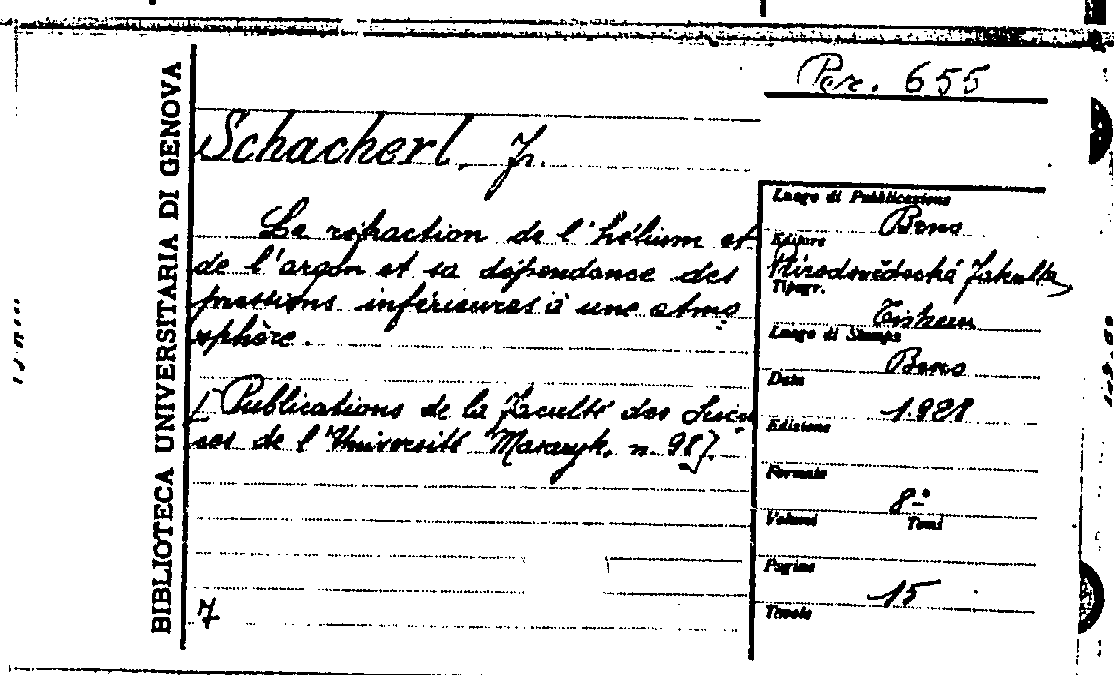 Per. 655
BIBLIOTECA UNIVERSITARIA DI GENOVA
Schacherl, Fr.
La réfraction de l'hélium et
de l'argon et sa dépendance des
pressions inférieures à une atmo
sphère.
[Publications de la Faculté des Scien
ces de l'Université Masaryk. n. 98].
7
Luogo di Pubblicazione
Brno
Editore
Přírodovědecká fakulta
Tipogr.
Tiskem
Luogo di Stampa
Brno
Data
1928
Edizione
Formato
8º
Volumi Tomi
Pagine
15
Tavole